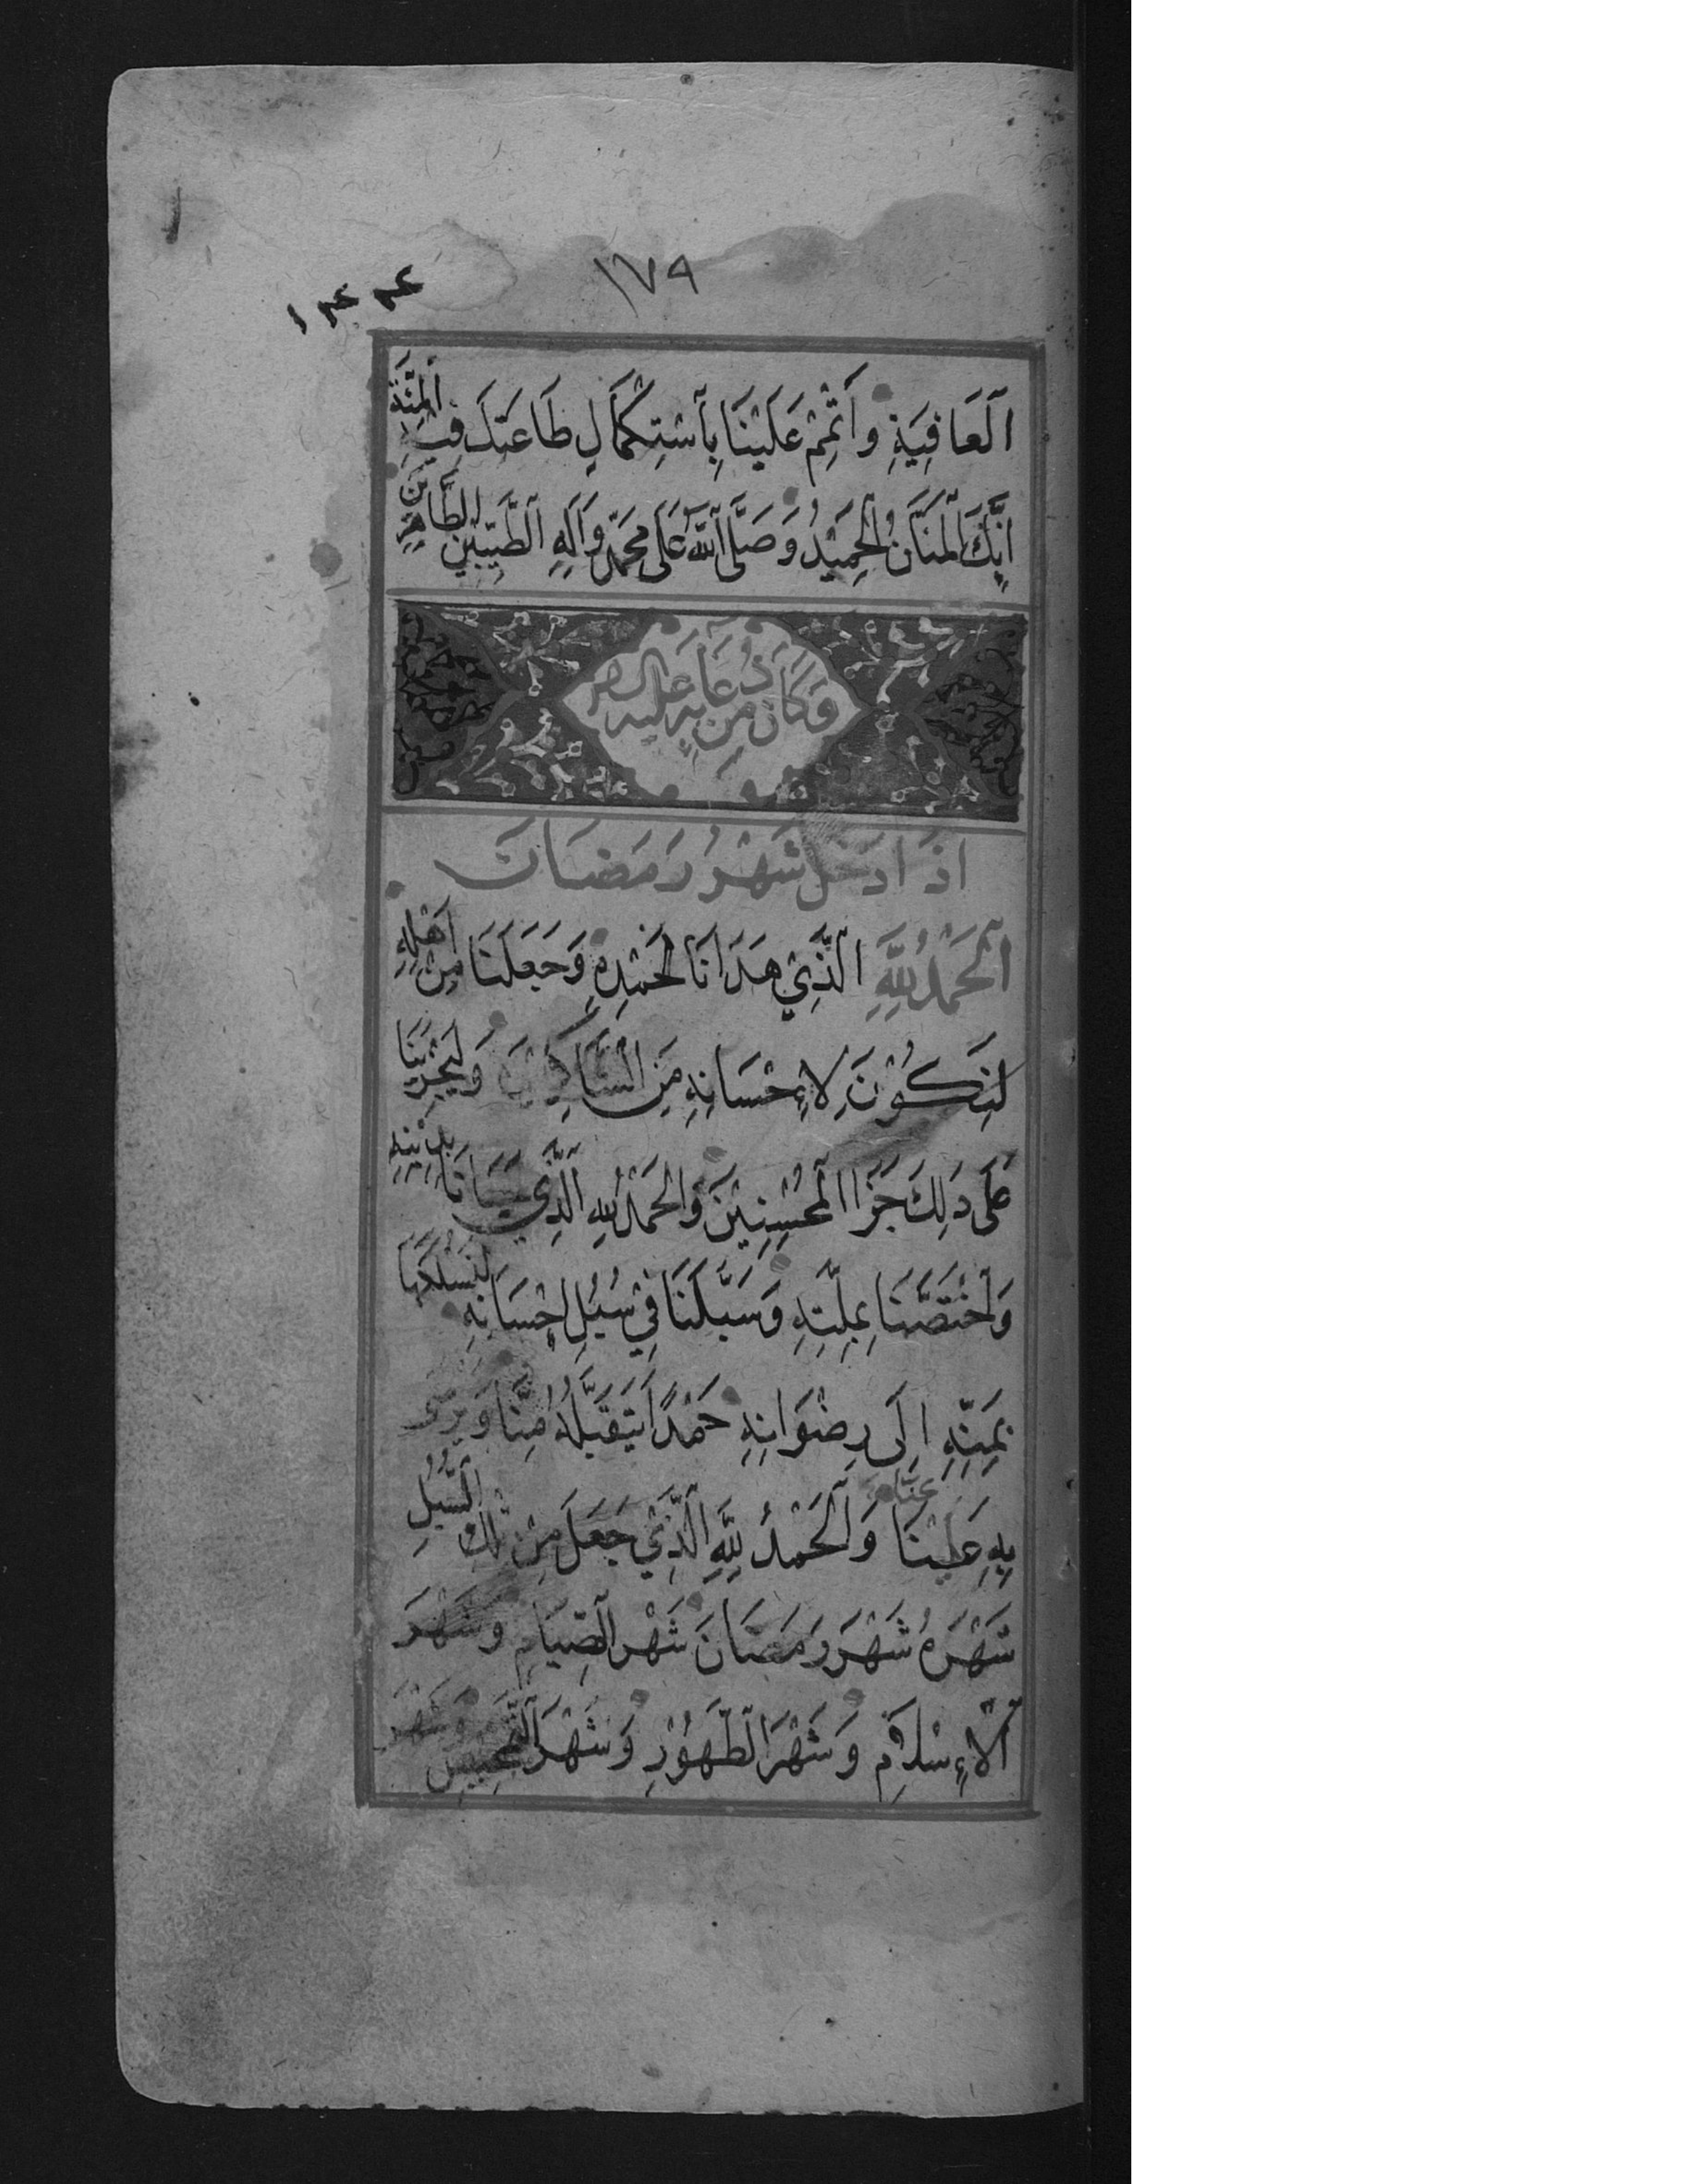 ١٧٩
١٤٤
اَلْعَافِيَةِ وَأَتْمِمْ عَلَيْنَا بِاَسْتِكْمَالِ طَاعَتِكَ فِيْهِ الْمِنَّةَ
اِنَّكَ الْمَنَّانُ الْحَمِيْدُ وَصَلَّى اَللّٰهُ عَلٰى مُحَمَّدٍ وَاٰلِهِ اَلطَّيِّبِيْنَ الطَّاهِرِيْنَ
وَكَانَ مِنْ دُعَائِهِ عَلَيْهِ
اِذَا دَخَلَ شَهْرُ رَمَضَانَ
اَلْحَمْدُ لِلّٰهِ الَّذِيْ هَدَانَا لِحَمْدِهِ وَجَعَلَنَا مِنْ اَهْلِهِ
لِنَكُوْنَ لِاِحْسَانِهِ مِنَ الشَّاكِرِيْنَ وَلِيَجْزِيَنَا
عَلَى ذَلِكَ جَزَاءَ الْمُحْسِنِيْنَ وَالْحَمْدُ لِلّٰهِ الَّذِي حَبَانَا بِدِيْنِهِ
وَاَخْتَصَّنَا بِمِلَّتِهِ وَسَبَّلَنَا فِيْ سُبُلِ اِحْسَانِهِ لِنَسْلُكَهَا
بِمَنِّهِ اِلَى رِضْوَانِهِ حَمْدًا يَتَقَبَّلُهُ مِنَّا وَيَرْضَى
عَنَّا
بِهِ عَلَيْنَا وَاَلْحَمْدُ لِلّٰهِ الَّذِيْ جَعَلَ مِنْ تِلْكَ السُّبُلِ
شَهْرَهُ شَهْرَ رَمَضَانَ شَهْرَ الصِّيَامِ وَشَهْرَ
اَلْاِسْلَامِ وَشَهْرَ الطَّهُوْرِ وَشَهْرَ التَّمْحِيْصِ وَشَهْرَ